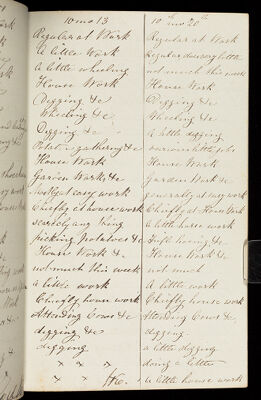 10 mo 13
Regular at Work
A little Work
A little wheeling
House Work
Digging &c
Wheeling &c
Digging &c
Potatoe gathering &c
House Work
Garden Work &c
Mostly at easy work
Chiefly at house work
scarcely any thing
picking potatoes &c
House Work &
not much this week
a little work
Chiefly house work
Attending Cows &c
digging &c
digging
" "
" "
10 mo 20th
Regular at Work
Regular doing little
not much this week
House Work
Digging &c
Wheeling &c
A little digging
various little jobs
House Work
Garden Work &c
generally at easy work
Chiefly at House Work
A little house work
hoeing &c
House Work &c
not much
A little work
Chiefly house work
Attending Cows &c
digging
a little digging
doing a little
a little house work